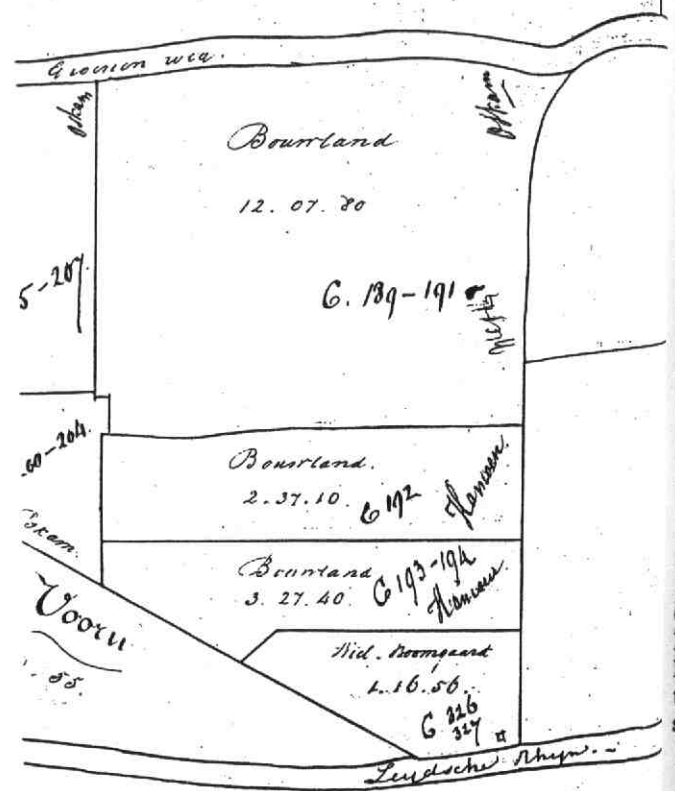 Groenen weg.
Oskam
Oskam
Bouwland
12. 07. 80
5-207
C. 189-191
60-204.
Bouwland.
2. 37. 10.
C 192
Hanssen.
Oskam.
Bouwland
3. 27. 40.
C 193-194
Voorn
. 55.
Boomgaard
1. 16. 56.
C 326
327
Leydsche Rhyn.